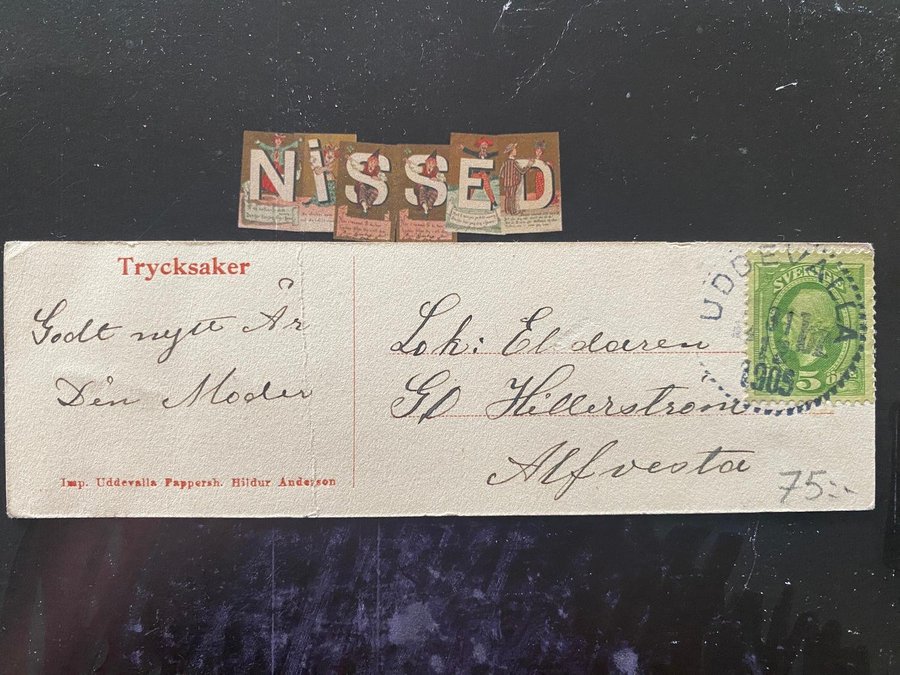 NiSSED
Trycksaker
Godt nytt År
Din Moder
Imp. Uddevalla Pappersh. Hildur Anderson
Lok: Eldaren
G Hillerström
Alfvesta
UDDEVALLA
31 12
1905
SVERIGE
5 ÖRE
75:-